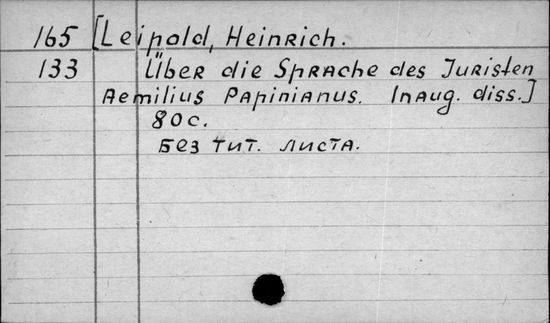 165 [Leipold, Heinrich.
133 Über die Sprache des Juristen
Aemilius Papinianus. Inaug. diss.]
80 с.
Без тит. листа.